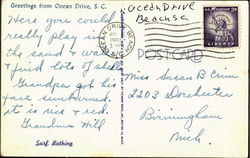 Greetings from Ocean Drive, S. C.
Here you could
really play in
the sand & water
& find lots of shells.
Grandpa got his
face sunburned.
it is nice & red.
Grandma Hill
Surf Bathing.
OCEAN DRIVE BEACH
POSTCARD
Miss Susan B Crim
2203 Dorchester
Birmingham
Mich.